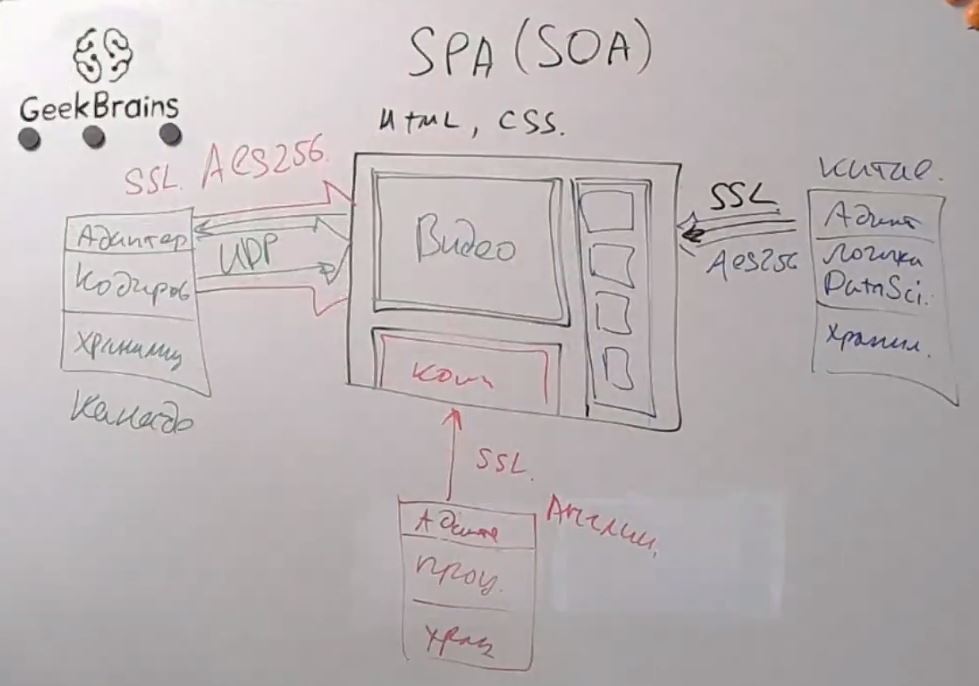 GeekBrains
SPA (SOA)
HTML, CSS.
SSL. AES256.
Адаптер
UDP
Кодиров
Хранилищ
Канада
Видео
Комм
SSL
AES256
Китае.
Адапт
Логика
DataSci.
Хранил.
SSL.
Англии.
Адапте
Проц.
Хран